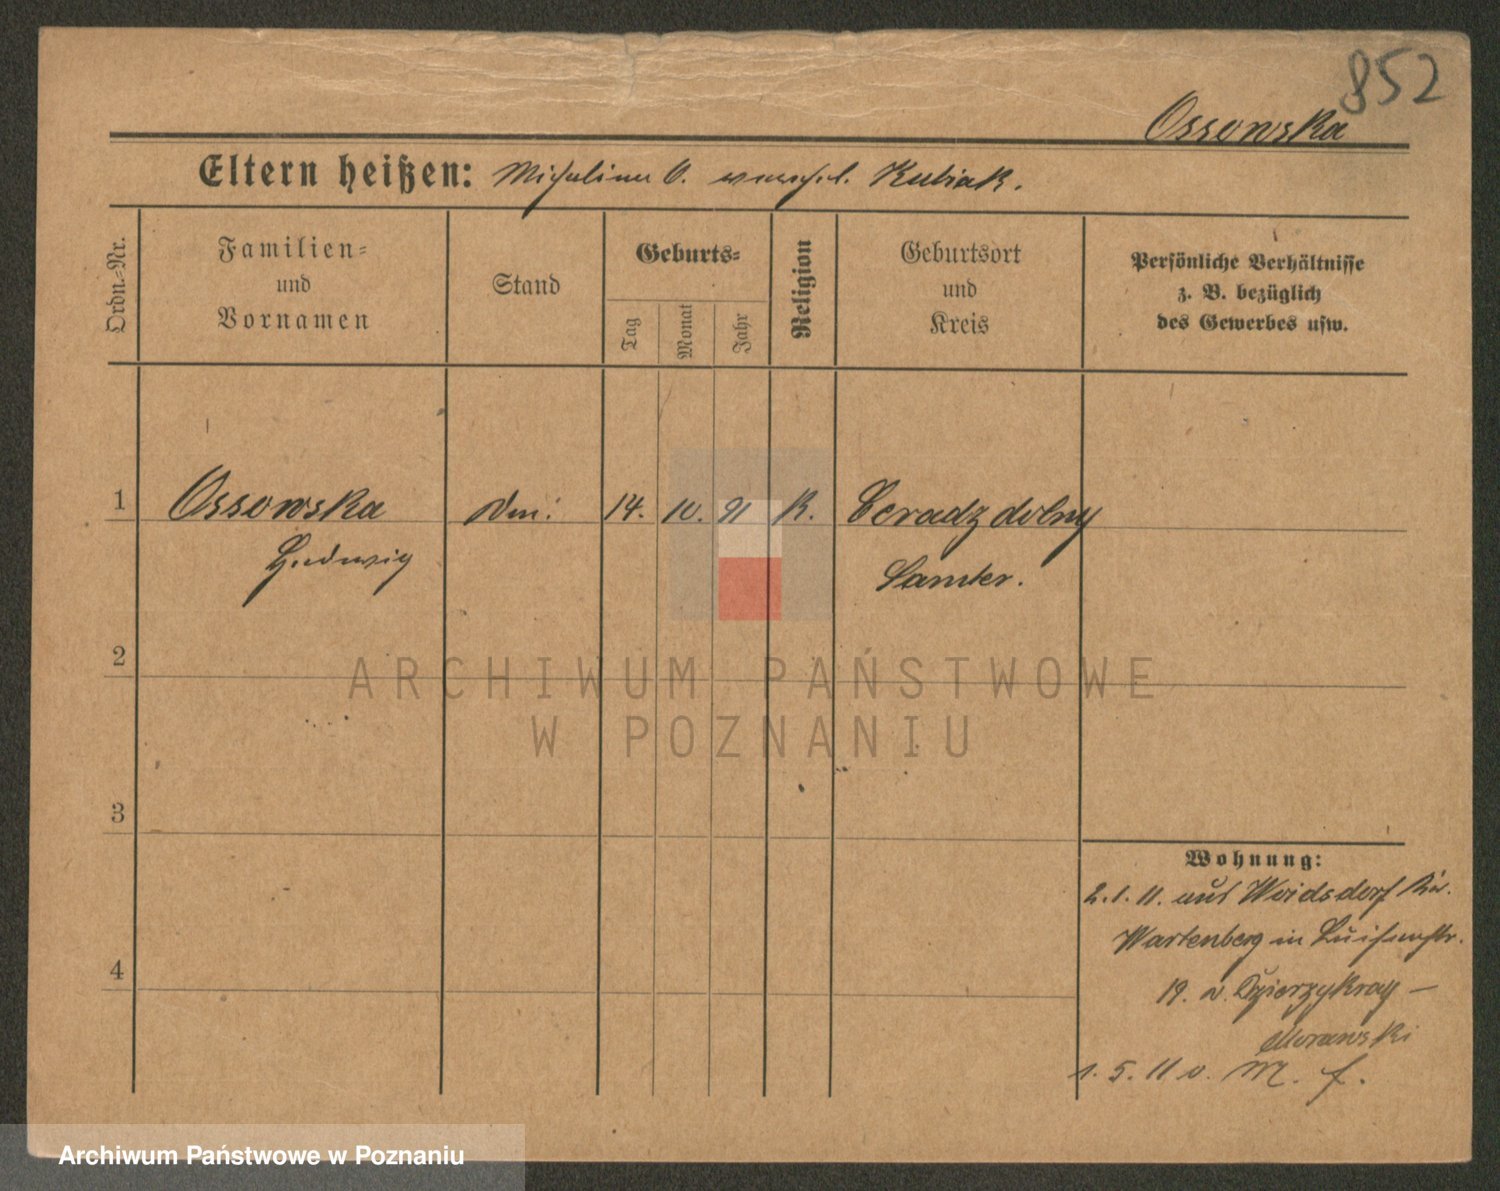 852
Ossowska
Eltern heißen: Michalina O. verehel. Kubiak.
Ordn.-Nr.
Familien-
und
Vornamen
Stand
Geburts-
Tag
Monat
Jahr
Religion
Geburtsort
und
Kreis
Persönliche Verhältnisse
z. B. bezüglich
des Gewerbes usw.
1 Ossowska 14. 10. 91 K. Ceradz dolny
Hedwig Samter.
2
ARCHIWUM PAŃSTWOWE
W POZNANIU
3
Wohnung:
2. 1. 11. aus Woidsdorf Kr.
Wartenberg in Luisenstr.
4
19. v. Dzierzykray –
Morawski
1. 5. 11 v. M. f.
Archiwum Państwowe w Poznaniu